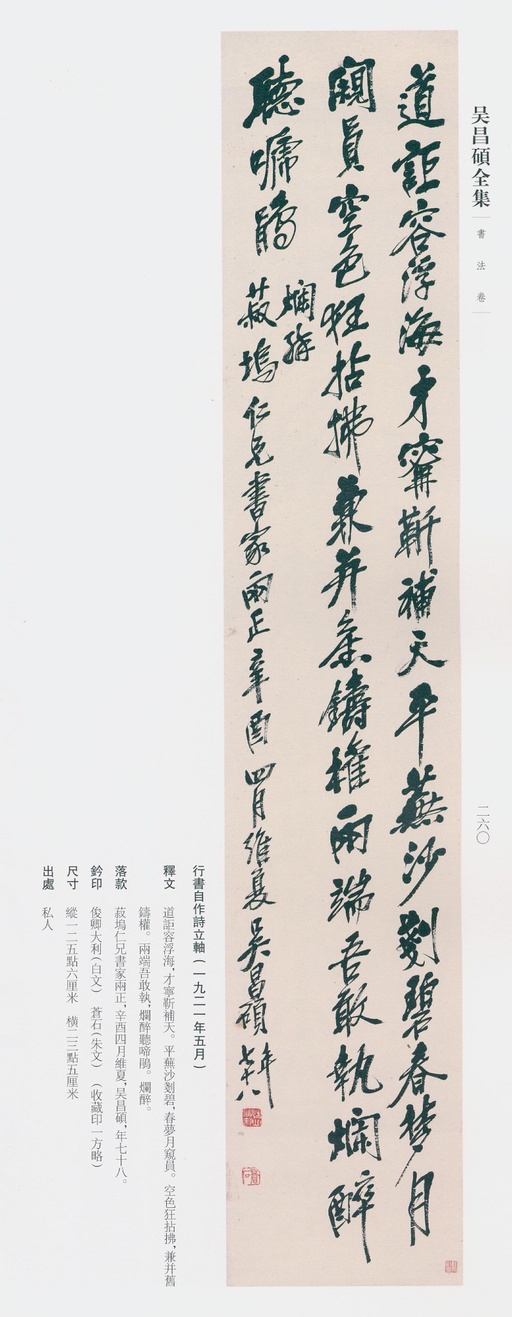 吴昌碩全集
書法卷
二六〇
道詎容浮海才寧靳補天平蕪沙剗碧春夢月
窺員空色狂拈拂兼并舊鑄權兩端吾敢執爛醉
聽嗁鵑
爛醉
菽塢仁兄書家兩正辛酉四月維夏吳昌碩年七十八
行書自作詩立軸（一九二一年五月）
釋文　道詎容浮海，才寧靳補天。平蕪沙剗碧，春夢月窺員。空色狂拈拂，兼并舊
鑄權。兩端吾敢執，爛醉聽啼鵑。爛醉。
落款　菽塢仁兄書家兩正，辛酉四月維夏，吴昌碩，年七十八。
鈐印　俊卿大利（白文）　蒼石（朱文）　（收藏印一方略）
尺寸　縱一二五點六厘米　橫二三點五厘米
出處　私人